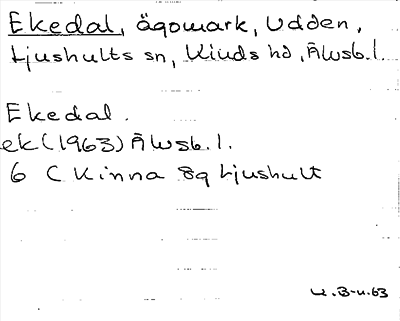 Ekedal, ägomark, Udden,
Ljushults sn, Kinds hd, Älvsb. l.
Ekedal.
ek (1963) Älvsb. l.
6 C Kinna 8g Ljushult